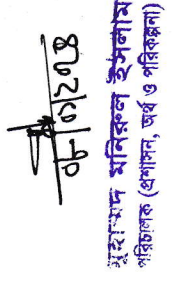 মুহাম্মদ মনিরুল ইসলাম
পরিচালক (প্রশাসন, অর্থ ও পরিকল্পনা)